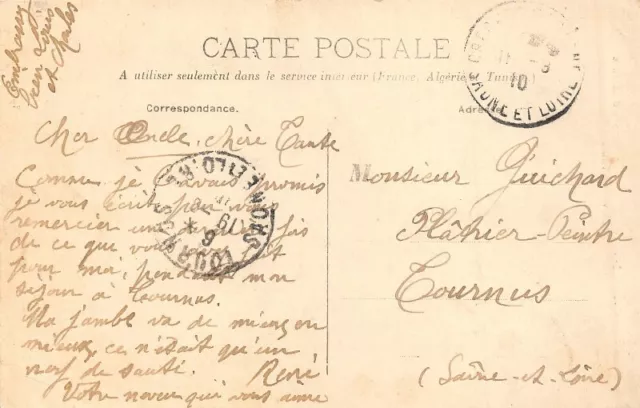 Embrassez
bien Louis
et Males
CARTE POSTALE
A utiliser seulement dans le service intérieur (France, Algérie et Tunisie)
Correspondance.
Adresse
Cher Oncle, chère Tante
Comme je l'avais promis
je vous écris pour vous
remercier une fois
de ce que vous avez fait
pour moi, pendant mon
séjour à Tournus.
Ma jambe va de mieux en
mieux, ce n'était qu'un
nerf de sauté.
René
Votre neveu qui vous aime
Monsieur Guichard
Plâtrier-Peintre
Tournus
(Saône-et-Loire)
TOURNUS
SAONE-ET-LOIRE
10
ET LOIRE